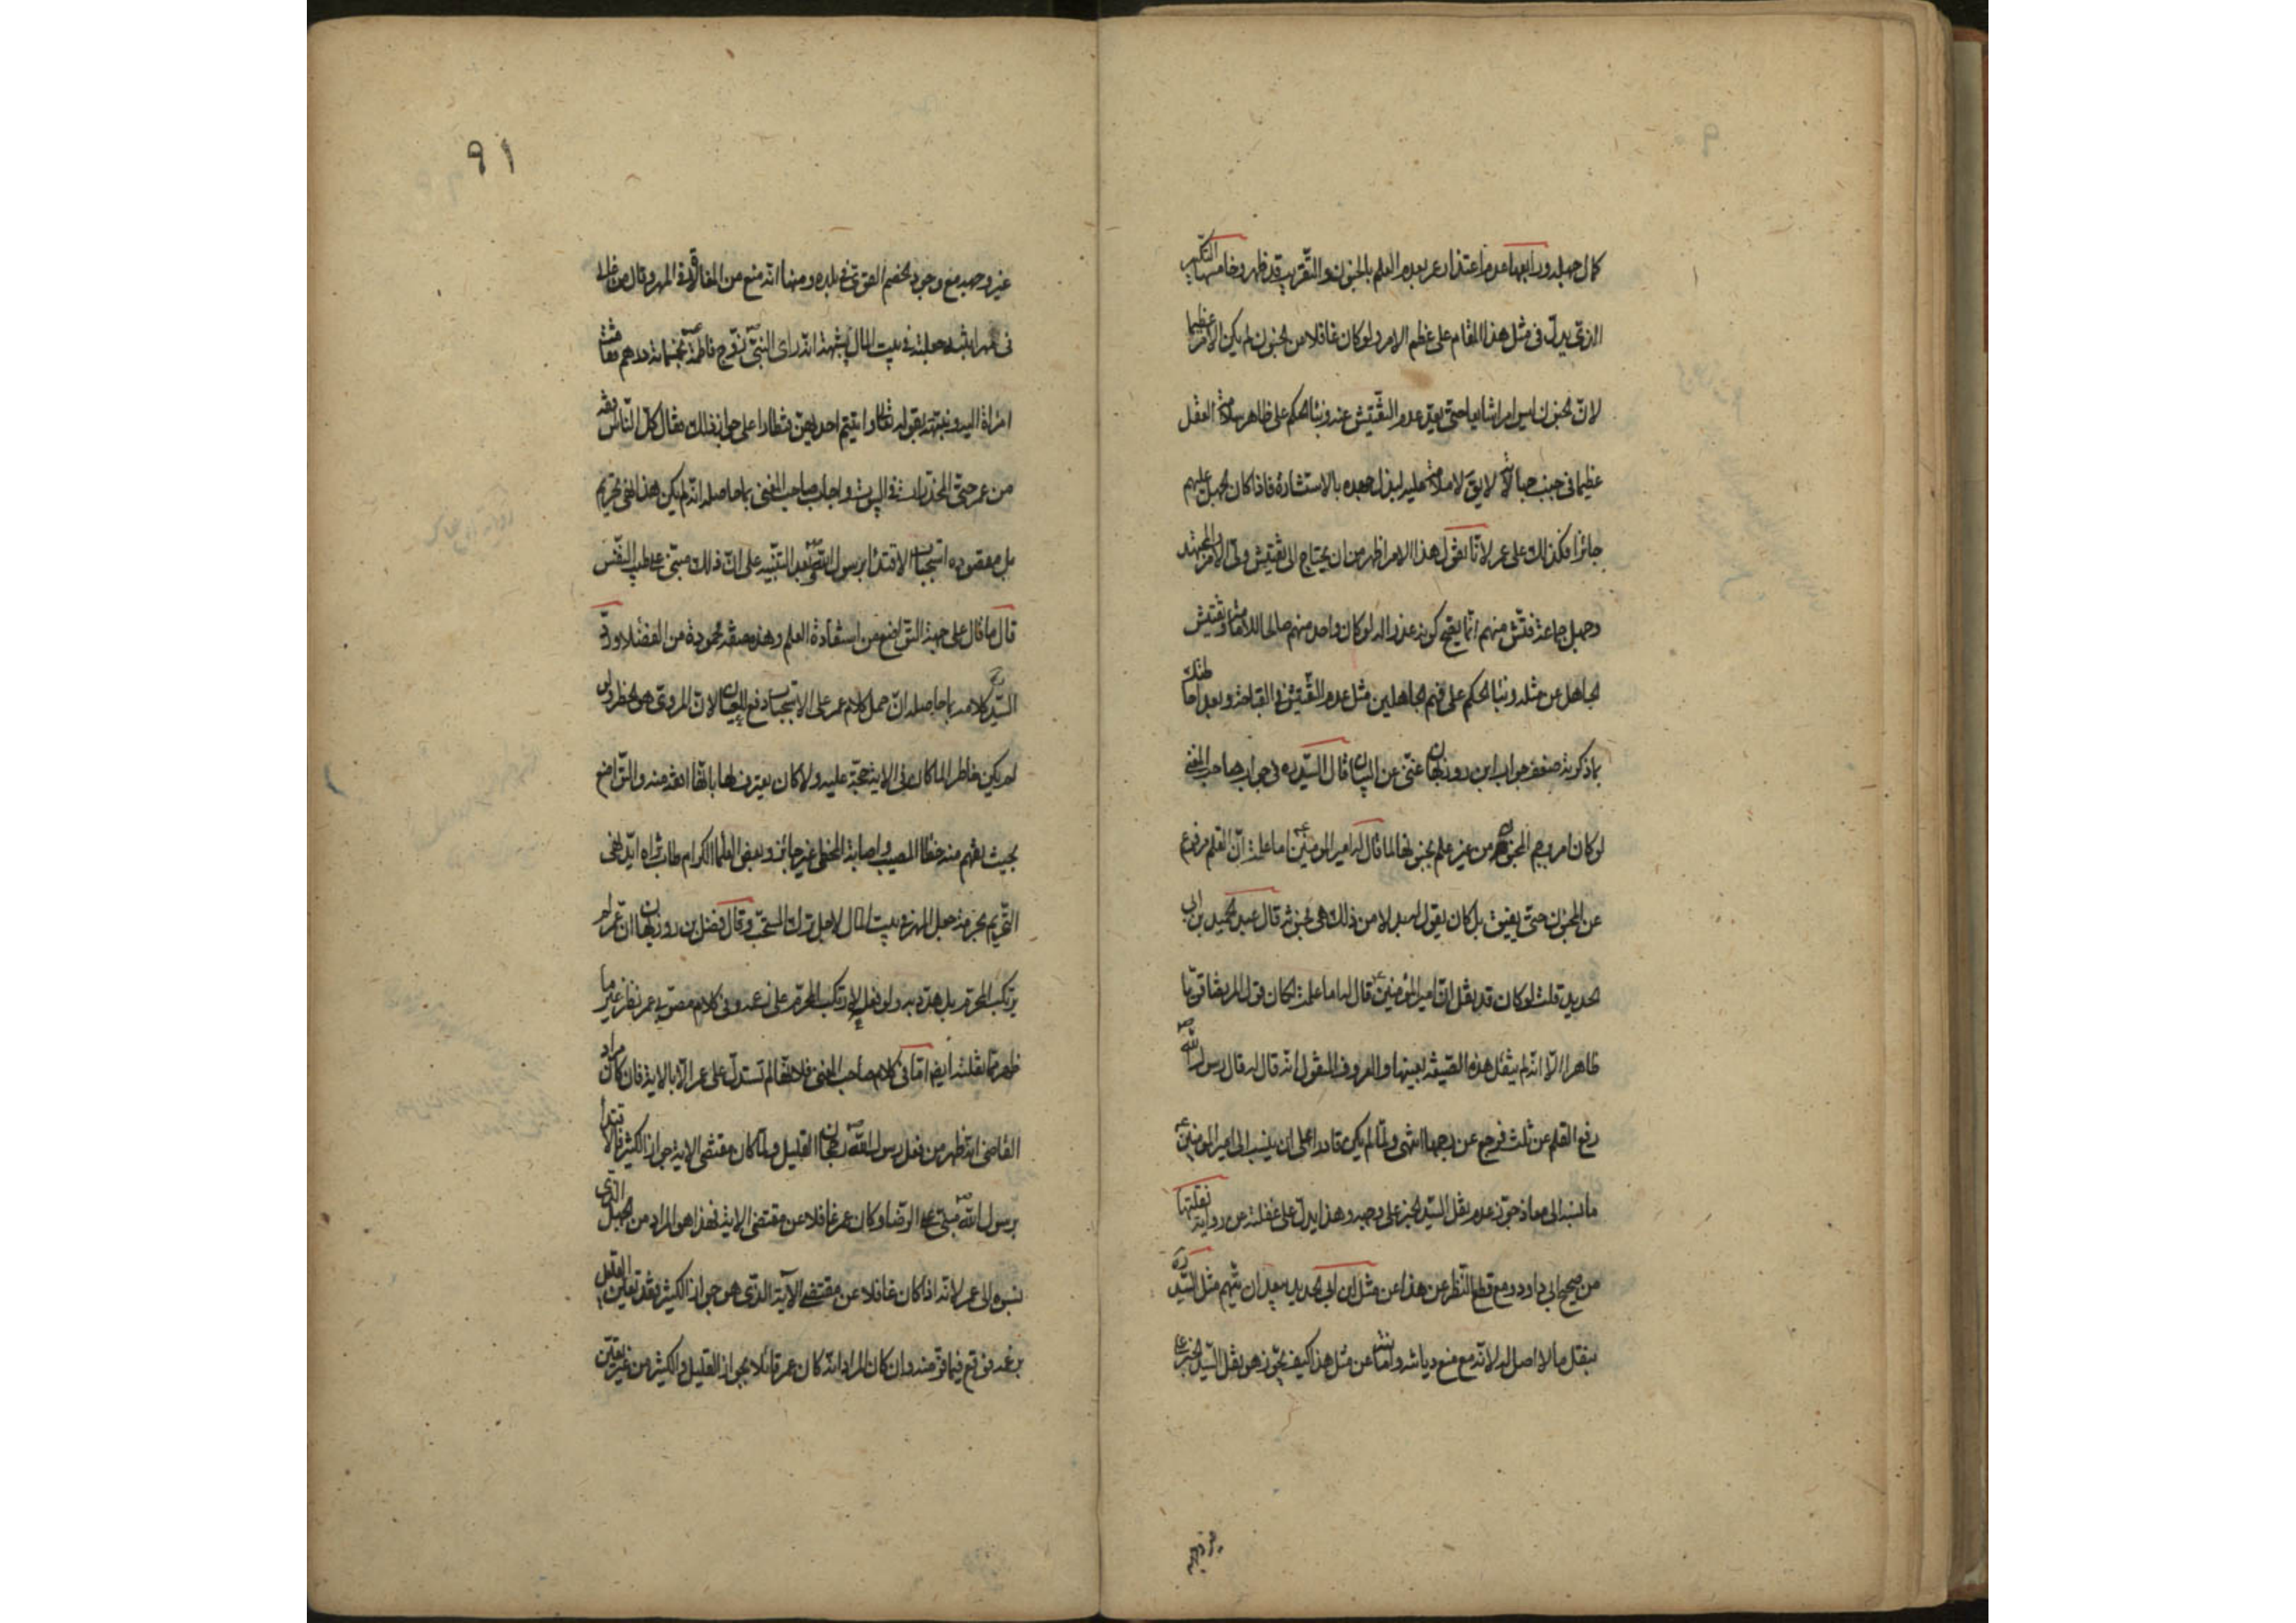 كمال جهله ورابعها عدم اعتذار عمر بعدم العلم بالجنون والتقريب قد ظهر وخامسها التكبير
الذي يدل في مثل هذا المقام على عظم الامر ولو كان غافلا من الجنون لم يكن الامر عظيما
لان الجنون ليس امرا شايعا حتى يعد عدم التفتيش عنه وبناء الحكم على ظاهر سلامة العقل
عظيما في جنب جهالاته لا يق لا ملامة عليه لبذل جهده بالاستشارة فاذا كان الجهل عليهم
جائزا فكذلك على عمر لانا نقول هذا الامر اظهر من ان يحتاج الى تفتيش ولي الامر والمجتهد
وجهل جماعة فتش منهم انما يقبح كونه عذرا له لو كان واحد منهم صالحا للامامة وتفتيش
الجاهل عن مثله وبناء الحكم على فهم الجاهلين مثل عدم التفتيش في القباحة وبعد احاطتك
بما ذكرته ضعف جواب ابن روزبهان غني عن البيان قال السيد ره في جواب صاحب المغني
لو كان امر برجم المجنونة من غير علم بجنونها لما قال له امير المومنين ع اما علمت ان القلم مرفوع
عن المجنون حتى يفيق بل كان يقول له بدلا من ذلك هي مجنونة قال عبد الحميد بن ابي
الحديد قلت لو كان قد نقل ان امير المؤمنين ع قال له اما علمت لكان قول المرتضى قويا
ظاهرا الا انه لم ينقل هذه الصيغة بعينها والمعروف المنقول انه قال له قال رسول الله ص
رفع القلم عن ثلث فرجع عن رجمها انتهى ولما لم يكن قادرا على ان ينسب الى امير المومنين ع
ما نسبه الى معاذ جوز عدم نقل السيد الخبر على وجهه وهذا يدل على غفلته عن رواية نقلتها
من صحيح ابي داود ومع قطع النظر عن هذا عن مثل ابن ابي الحديد بعيد ان يتهم مثل السيد ره
بنقل ما لا اصل له لانه مع منع ديانته وامانته عن مثل هذا كيف يجوز هو نقل السيد الخبر على
غير وجهه
٩١
غير وجهه مع وجود الخصم القوي في بلده ومنها انه منع من المغالاة في المهر وقال من غالى
في مهر ابنته جعلته في بيت المال بشبهة انه راى النبي ص زوج فاطمة ع بخمسمائة درهم فقامت
امراة اليه ونبهته بقوله تعالى واتيتم احديهن قنطارا على جواز ذلك فقال كل الناس افقه
من عمر حتى المخدرات في البيوت واجاب صاحب المغني بما حاصله انه لم يكن هذا نهي تحريم
بل مقصوده استحباب الاقتداء برسول الله ص بعد التنبيه على ان ذلك مبني على طيب النفس
قال ما قال على جهة التواضع من استفادة العلم وهذه صفة محمودة من الفضلاء ورد
السيد ره كلامه بما حاصله ان حمل كلام عمر على الاستحباب دفع للعيان لان المروي هو الحظر ولو
لم يكن خاطرا لما كان في الاية حجة عليه ولا كان يعترف لها بانها افقه منه والتواضع
بحيث يفهم منه خطا المصيب واصابة المخطي غير جائز وبعض العلماء الكرام طاب ثراه ايد نهي
التحريم بحرمة جعل المهر في بيت المال لاجل ترك المستحب وقال فضل بن روزبهان ان عمر لم
يرتكب المحرم بل هدد به ولو فعل لارتكب المحرم على زعمه وفي كلام مصوبي عمر نظر غير ما
ظهر مما نقلته ايضا اما في كلام صاحب المغني فلانها لم تستدل على عمر الا بالاية فان كان مراد
القاضي انه ظهر من فعل رسول الله ص رجحان القليل ولما كان مقتضى الاية جواز الكثير فالاقتداء
برسول الله ص مبني على الرضا وكان عمر غافلا عن مقتضى الاية فهذا هو المراد من الجهل الذي
نسبوه الى عمر لانه اذا كان غافلا عن مقتضى الآية الذي هو جواز الكثير فقد تعين القليل
بزعمه فوقع فيما فر منه وان كان المراد انه كان عمر قائلا بجواز القليل والكثير من غير تعيين